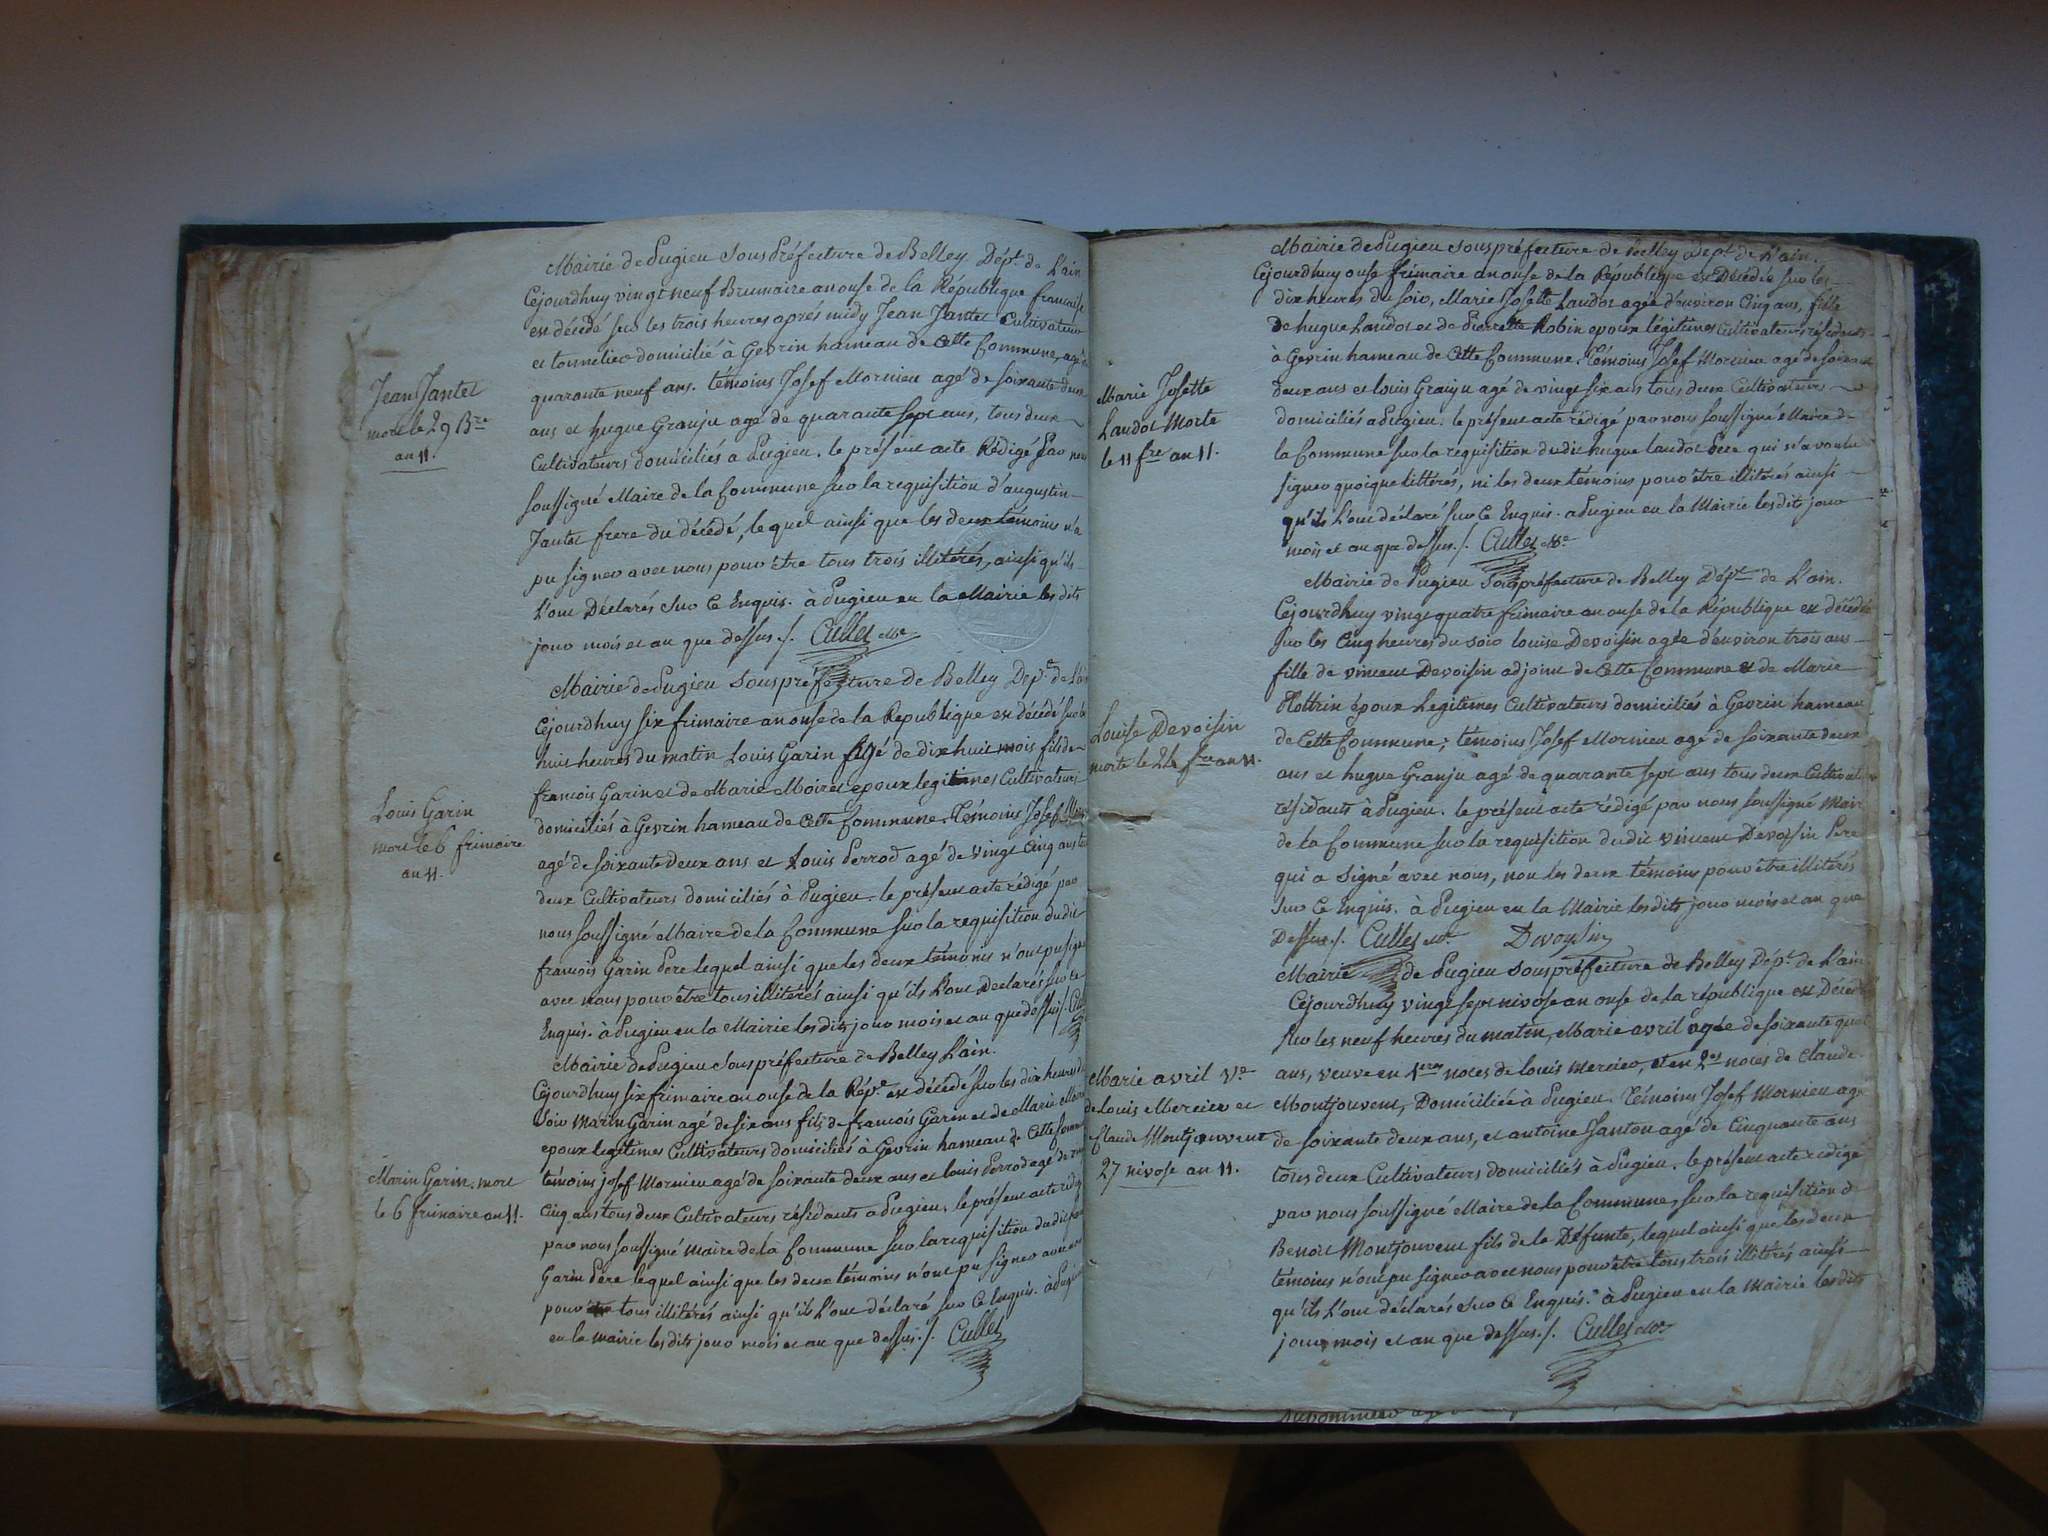 Mairie de Pugieu Sous Préfecture de Belley Dépt. de L'ain
Cejourdhuy vingt neuf Brumaire an onse de la République francaise
est décédé sur les trois heures aprés midy Jean Jantet Cultivateur
et tonnelier domicilié à Gevrin hameau de Cette Commune, agé de
quarante neuf ans. témoins Josef Mornieu agé de soixante deux
ans et hugue Granju agé de quarante sept ans, tous deux
Cultivateurs domiciliés à Pugieu. le présent acte Rédigé Par nous
soussigné Maire de la Commune sur la requisition d'augustin
Jantet frere du décédé, lequel ainsi que les deux témoins n'a
pu signer avec nous pour être tous trois illitérés, ainsi qu'ils
L'ont Déclarés sur Ce Enquis. à Pugieu en la Mairie les dits
jour mois et an que dessus ./. Cullet Mre
Jean Jantet
mort le 29 Bre
an 11.
Mairie de Pugieu Sous préfecture de Belley Dépt. de L'ain
Cejourdhuy six frimaire an onse de la Republique est décédé sur les
huit heures du matin Louis Garin agé de dix huit mois fils de
francois Garin et de Marie Moiret epoux legitimes Cultivateurs
domiciliés à Gevrin hameau de Cette Commune. Témoins Josef
agé de soixante deux ans et Louis Perrod agé de vingt Cinq ans tous
deux Cultivateurs domiciliés à Pugieu. le présent acte rédigé par
nous soussigné Maire de la Commune sur la requisition dudit
francois Garin Pere lequel ainsi que les deux témoins n'ont pu signer
avec nous pour être tous illitérés ainsi qu'ils L'ont Declarés sur ce
Enquis. à Pugieu en la Mairie les dits jour mois et an que dessus ./.
Louis Garin
mort le 6 frimaire
an 11.
Mairie de Pugieu Sous préfecture de Belley L'ain.
Cejourdhuy six frimaire an onse de la Répe. est décédé sur les dix heures du
soir Marin Garin agé de six ans fils de francois Garin et de Marie
epoux legitimes Cultivateurs domiciliés à Gevrin hameau de Cette
témoins josef Mornieu agé de soixante deux ans et louis Perrod agé de
Cinq ans tous deux Cultivateurs résidants a Pugieu. le présent acte
par nous soussigné Maire de la Commune sur la requisition dudit
Garin Pere lequel ainsi que les deux témoins n'ont pu signer avec
pour être tous illitérés ainsi qu'ils L'ont déclaré sur Ce Enquis. à Pugieu
en la mairie les dits jour mois et an que dessus ./. Cullet
Marin Garin. mort
le 6 frimaire an 11.
Mairie de Pugieu sous préfecture de Belley Dépt. de L'ain.
Cejourdhuy onse frimaire an onse de la République est Décédée sur les
dix heures du soir, Marie Josette Landot agée d'environ Cinq ans, fille
de hugue Landot et de Pierrette Robin epoux légitimes Cultivateurs résidents
à Gevrin hameau de Cette Commune. Témoins Josef Mornieu agé de soixante
deux ans et louis Graiju agé de vingt six ans tous deux Cultivateurs
domiciliés a Pugieu. le présent acte rédigé par nous soussigné Maire de
la Commune sur la requisition dudit hugue landot Pere qui n'a voulu
signer quoique littérés, ni les deux témoins pour être illitérés ainsi
qu'ils L'ont déclaré sur Ce Enquis. a Pugieu en la Mairie les dits jour
mois et an que dessus ./. Cullet Mre
Marie Josette
Landot Morte
le 11 fre an 11.
Mairie de Pugieu Sous préfecture de Belley Dépt. de L'ain.
Cejourdhuy vingt quatre frimaire an onse de la République est décédée
sur les Cinq heures du soir louise Devoisin agée d'environ trois ans
fille de vincent Devoisin adjoint de Cette Commune et de Marie
Hottrin époux Legitimes Cultivateurs domiciliés à Gevrin hameau
de Cette Commune; témoins Josef Mornieu agé de soixante deux
ans et hugue Granju agé de quarante sept ans tous deux
résidants à Pugieu. le présent acte rédigé par nous soussigné Maire
de la Commune sur la requisition dudit vincent Devoisin Pere
qui a signé avec nous, non les deux témoins pour être illitérés
sur Ce Enquis. à Pugieu en la Mairie les dits jour mois et an que
Dessus ./. Cullet Mre Devoysin
Louise Devoisin
morte le 24 fre an 11.
Mairie de Pugieu sous préfecture de Belley Dépt. de L'ain
Cejourdhuy vingt sept nivose an onse de la république est Décédée
sur les neuf heures du matin, Marie avril agée de soixante quat
ans, veuve en 1eres noces de louis Mercier, et en 2es noces de Claude
Montjouvent, Domiciliée à Pugieu. Témoins Josef Mornieu agé
de soixante deux ans, et antoine Janton agé de Cinquante ans
tous deux Cultivateurs domiciliés à Pugieu. le présent acte redigé
par nous soussigné Maire de la Commune, sur la requisition de
Benoit Montjouvent fils de la Défunte, lequel ainsi que les deux
témoins n'ont pu signer avec nous pour être tous trois illitrés ainsi
qu'ils L'ont déclarés sur Ce Enquis. à Pugieu en la Mairie les dits
jour, mois et an que dessus ./. Cullet Mre
Marie avril Ve
de Louis Mercier et
Claude Montjouvent
27 nivose an 11.